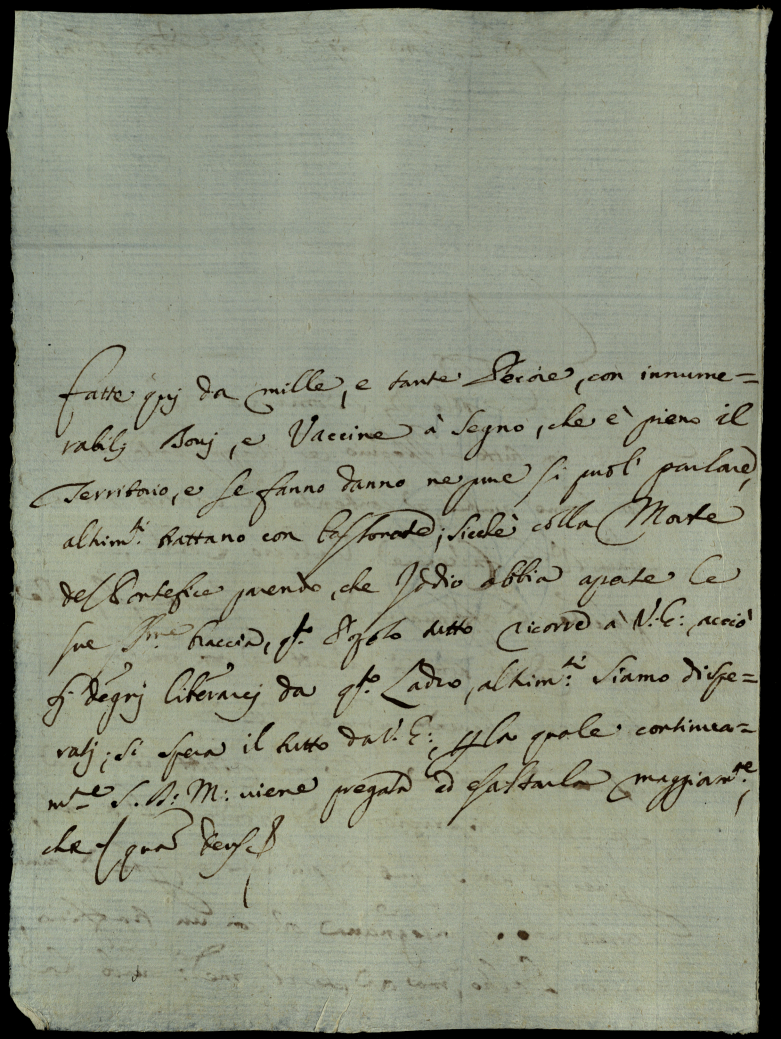 fatte quj da mille, e tante Pecore, con innume=
rabilj Bovj, e Vaccine à segno, che è pieno il
Territorio, e se fanno danno ne pure si puol' parlare,
altrim.ti trattano con bastonate; sicchè colla Morte
del Pontefice parendo, che Iddio abbia aperte le
sue braccia, q.to Popolo tutto ricorre à V. E: acciò
si degnj liberarcj da q.to Ladro, altrim.ti siamo dispe=
ratj; si spera il tutto da V. E:, per la quale continua=
m.te S. D. M: viene pregata ad esaltarla maggiorm.te,
che